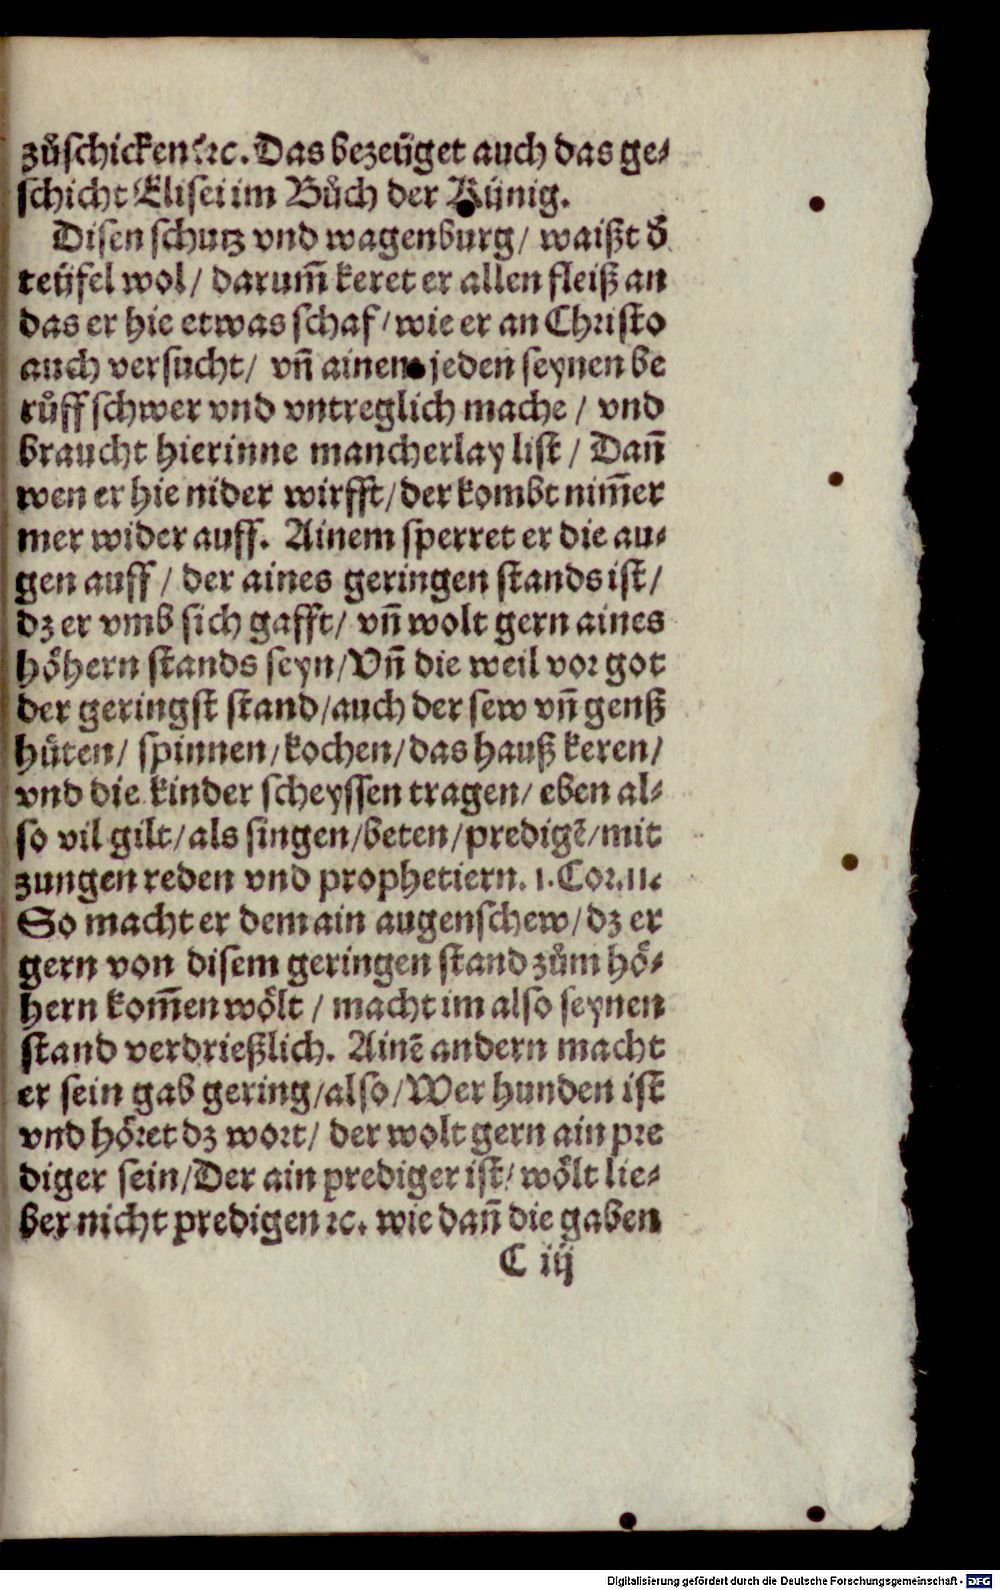 zůschicken ꝛc. Das bezeüget auch das ge⸗
schicht Elisei im Bůch der Künig.
Disen schutz vnd wagenburg/ waißt d̕
teüfel wol/ darum̃ keret er allen fleiß an
das er hie etwas schaf/ wie er an Christo
auch versucht/ vñ ainem jeden seynen be
růff schwer vnd vntreglich mache/ vnd
braucht hierinne mancherlay list/ Dañ
wen er hie nider wirfft/ der kombt nim̃er
mer wider auff. Ainem sperret er die au⸗
gen auff/ der aines geringen stands ist/
dz er vmb sich gafft/ vñ wolt gern aines
hoͤhern stands seyn/ Vñ die weil vor got
der geringst stand/ auch der sew vñ genß
huͤten/ spinnen/ kochen/ das hauß keren/
vnd die kinder scheyssen tragen/ eben al⸗
so vil gilt/ als singen/ beten/ predigẽ/ mit
zungen reden vnd prophetiern. 1. Cor. 11.
So macht er dem ain augenschew/ dz er
gern von disem geringen stand zům hoͤ⸗
hern kom̃en woͤlt/ macht im also seynen
stand verdrießlich. Ainẽ andern macht
er sein gab gering/ also/ Wer hunden ist
vnd hoͤret dz wort/ der wolt gern ain pre
diger sein/ Der ain prediger ist/ woͤlt lie⸗
ber nicht predigen ꝛc. wie dañ die gaben
C iij
Digitalisierung gefördert durch die Deutsche Forschungsgemeinschaft - DFG